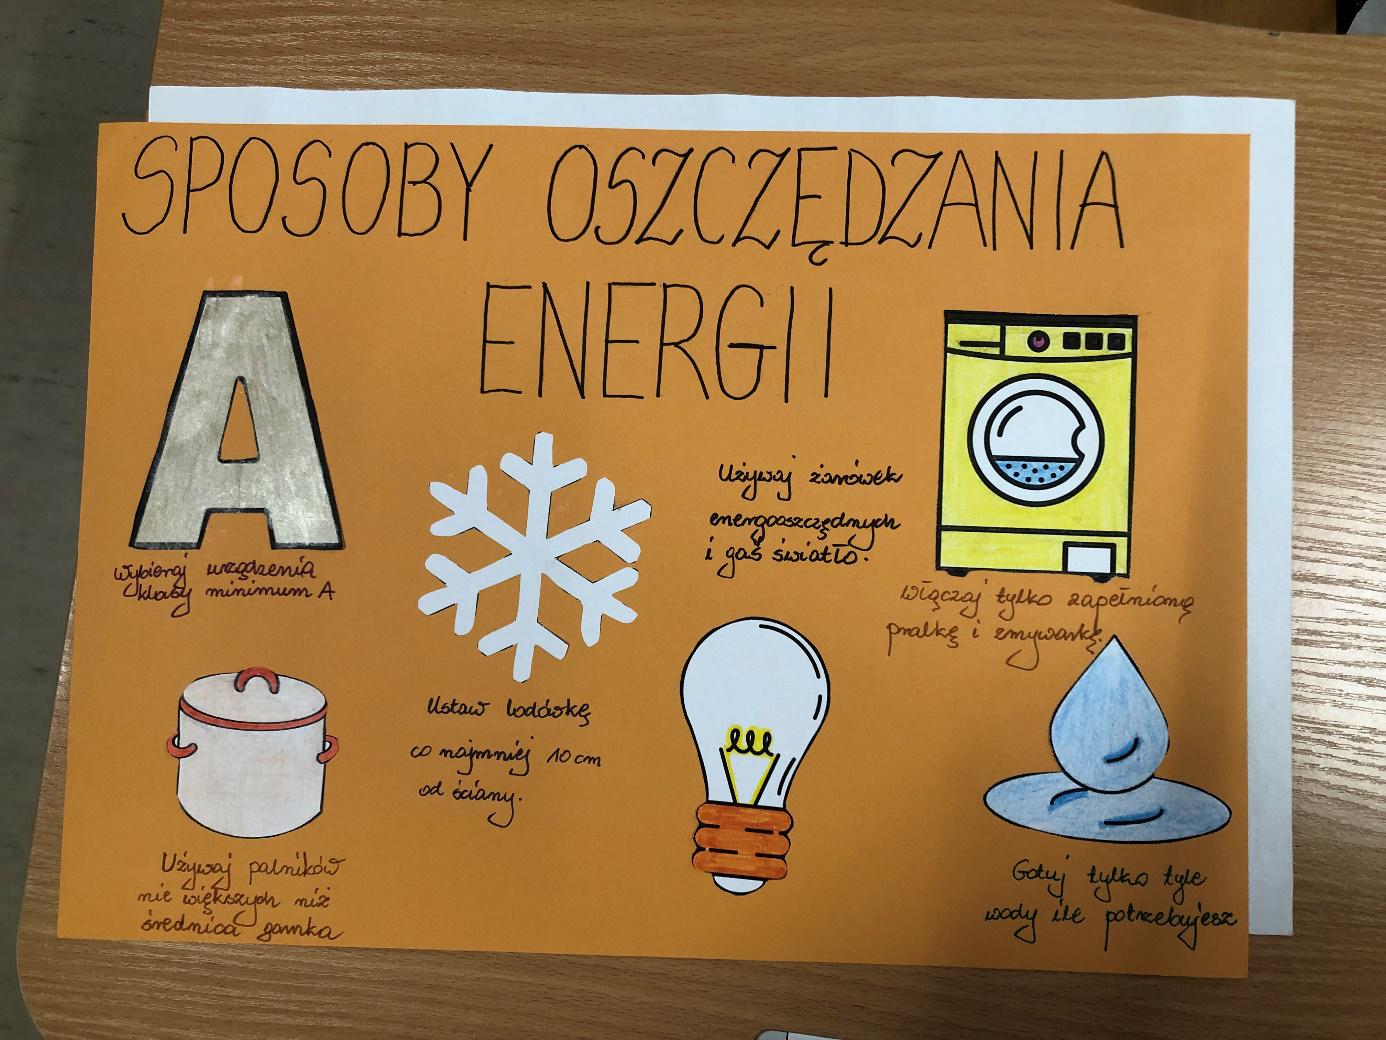 SPOSOBY OSZCZĘDZANIA
ENERGII
A
Wybieraj urządzenia
klasy minimum A
Ustaw lodówkę
co najmniej 10 cm
od ściany.
Używaj żarówek
energooszczędnych
i gaś światło.
Włączaj tylko zapełnioną
pralkę i zmywarkę.
Używaj palników
nie większych niż
średnica garnka
Gotuj tylko tyle
wody ile potrzebujesz